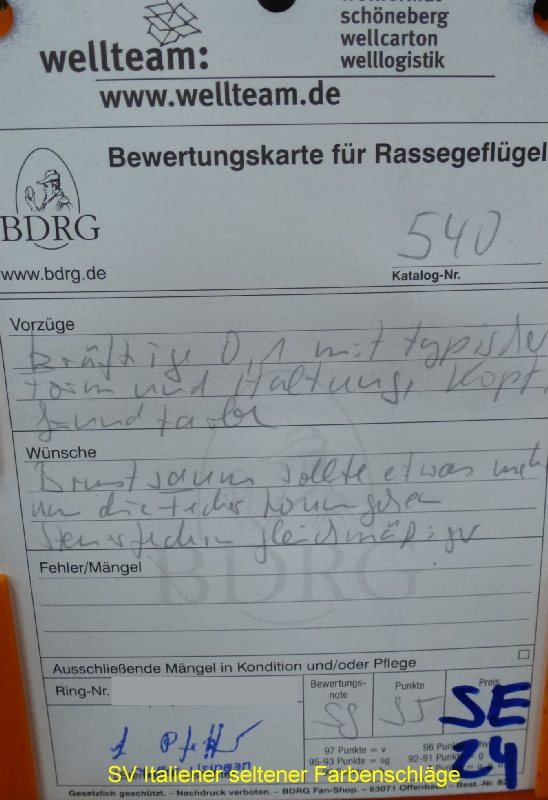 schöneberg
wellcarton
wellteam:
welllogistik
www.wellteam.de
Bewertungskarte für Rassegeflügel
BDRG
540
www.bdrg.de
Katalog-Nr.
Vorzüge
Kräftige 0,1 mit typischer
Form und Haltung, Kopf,
Grundfarbe
Wünsche
Brustsaum sollte etwas mehr
um die Feder herum gehen
Steuerfedern gleichmäßiger
Fehler/Mängel
BDRG
Ausschließende Mängel in Kondition und/oder Pflege
Ring-Nr.
Bewertungs-
note
Punkte
Preis
sg
95
SE
24
97 Punkte = v
96 Punkte = hv
95-93 Punkte = sg
92-91 Punkte = g
SV Italiener seltener Farbenschläge
Gesetzlich geschützt. - Nachdruck verboten. - BDRG Fan-Shop. - 63071 Offenbach - Best.-Nr.